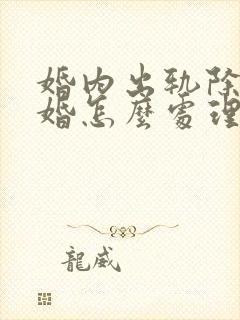 婚内出轨除
婚怎麼處理
龍威